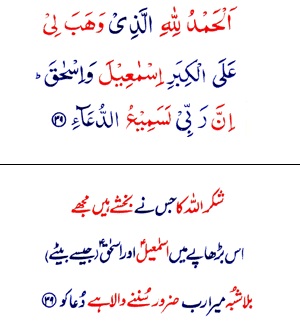 اَلْحَمْدُ لِلّٰهِ الَّذِیْ وَهَبَ لِیْ
عَلَی الْکِبَرِ اِسْمٰعِیْلَ وَاِسْحٰقَ ؕ
اِنَّ رَبِّیْ لَسَمِیْعُ الدُّعَآءِ ﴿۳۹﴾
شکر اللہ کا جس نے بخشے ہیں مجھے
اس بڑھاپے میں اسمٰعیلؑ اور اسحٰقؑ (جیسے بیٹے)
بلاشُبہ میرا رب ضرور سُننے والا ہے دُعا کو ﴿۳۹﴾